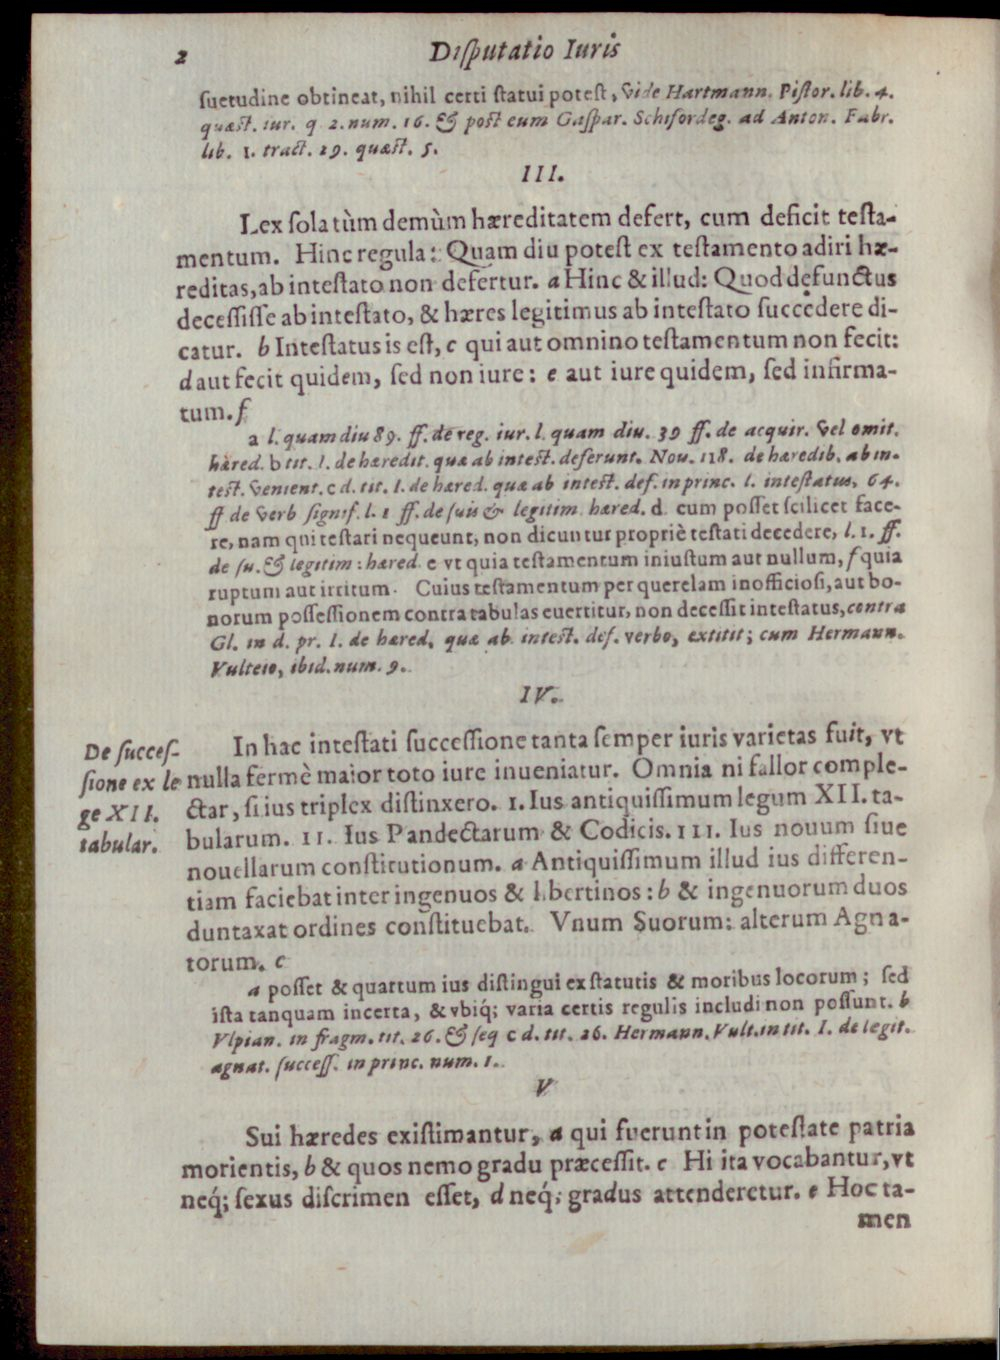 2 Diſputatio Iuris
ſuetudine obtineat, nihil certi ſtatui poteſt, Vide Hartmann. Piſtor. lib. 4.
quæſt. iur. q 2. num. 16. & poſt eum Gaſpar. Schifordeg. ad Anton. Fabr.
lib. 1. tract. 29. quæſt. 5.
III.
Lex ſola tùm demùm hæreditatem defert, cum deficit teſta-
mentum. Hinc regula: Quam diu poteſt ex teſtamento adiri hæ-
reditas, ab inteſtato non defertur. a Hinc & illud: Quod defunctus
deceſſiſſe ab inteſtato, & hæres legitimus ab inteſtato ſuccedere di-
catur. b Inteſtatus is eſt, c qui aut omnino teſtamentum non fecit:
d aut fecit quidem, ſed non iure: e aut iure quidem, ſed infirma-
tum. f
a l. quam diu 89. ff. de reg. iur. l. quam diu. 39 ff. de acquir. vel omit.
hæred. b tit. I. de hæredit. quæ ab inteſt. deferunt. Nov. 118. de hæredib. ab in-
teſt. venient. c d. tit. I. de hæred. quæ ab inteſt. def. in princ. l. inteſtatus, 64.
ff de verb ſignif. l. 1 ff. de ſuis & legitim hæred. d cum poſſet ſcilicet face-
re, nam qui teſtari nequeunt, non dicuntur propriè teſtati decedere, l. 1. ff.
de ſu. & legitim: hæred. e vt quia teſtamentum iniuſtum aut nullum, f quia
ruptum aut irritum. Cuius teſtamentum per querelam inofficioſi, aut bo-
norum poſſeſſionem contra tabulas euertitur, non deceſſit inteſtatus, contra
Gl. in d. pr. I. de hæred. quæ ab inteſt. def. verbo, extitit; cum Hermann.
Vulteio, ibid. num. 9.
IV.
De ſucceſ-
ſione ex le
ge XII.
tabular.
In hac inteſtati ſucceſſione tanta ſemper iuris varietas fuit, vt
nulla fermè maior toto iure inueniatur. Omnia ni fallor comple-
ctar, ſi ius triplex diſtinxero. 1. Ius antiquiſſimum legum XII. ta-
bularum. 11. Ius Pandectarum & Codicis. 111. Ius nouum ſiue
nouellarum conſtitutionum. a Antiquiſſimum illud ius differen-
tiam faciebat inter ingenuos & libertinos: b & ingenuorum duos
duntaxat ordines conſtituebat. Vnum Suorum: alterum Agna-
torum. c
a poſſet & quartum ius diſtingui ex ſtatutis & moribus locorum; ſed
iſta tanquam incerta, & vbiq́; varia certis regulis includi non poſſunt. b
Vlpian. in fragm. tit. 26. & ſeq c d. tit. 26. Hermann. Vult. in tit. I. de legit.
agnat. ſucceſſ. in princ. num. 1.
V
Sui hæredes exiſtimantur, a qui fuerunt in poteſtate patria
morientis, b & quos nemo gradu præceſſit. c Hi ita vocabantur, vt
neq́; ſexus diſcrimen eſſet, d neq́; gradus attenderetur. e Hoc ta-
men